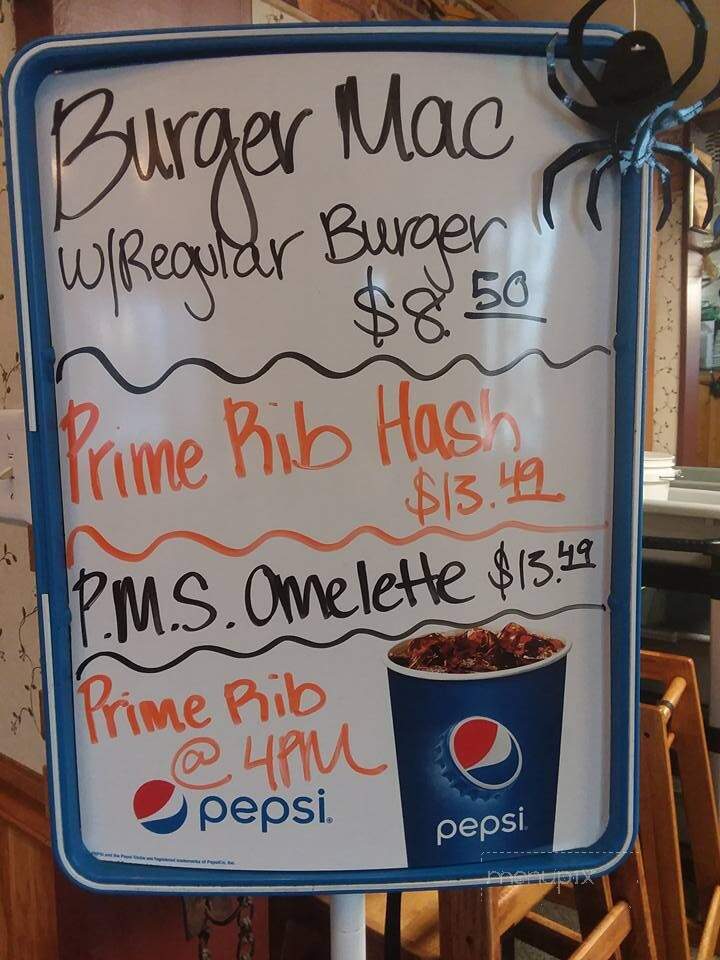 Burger Mac
w/Regular Burger
$8.50
Prime Rib Hash
$13.49
P.M.S. Omelette $13.49
Prime Rib
@ 4PM
pepsi
pepsi
menupix